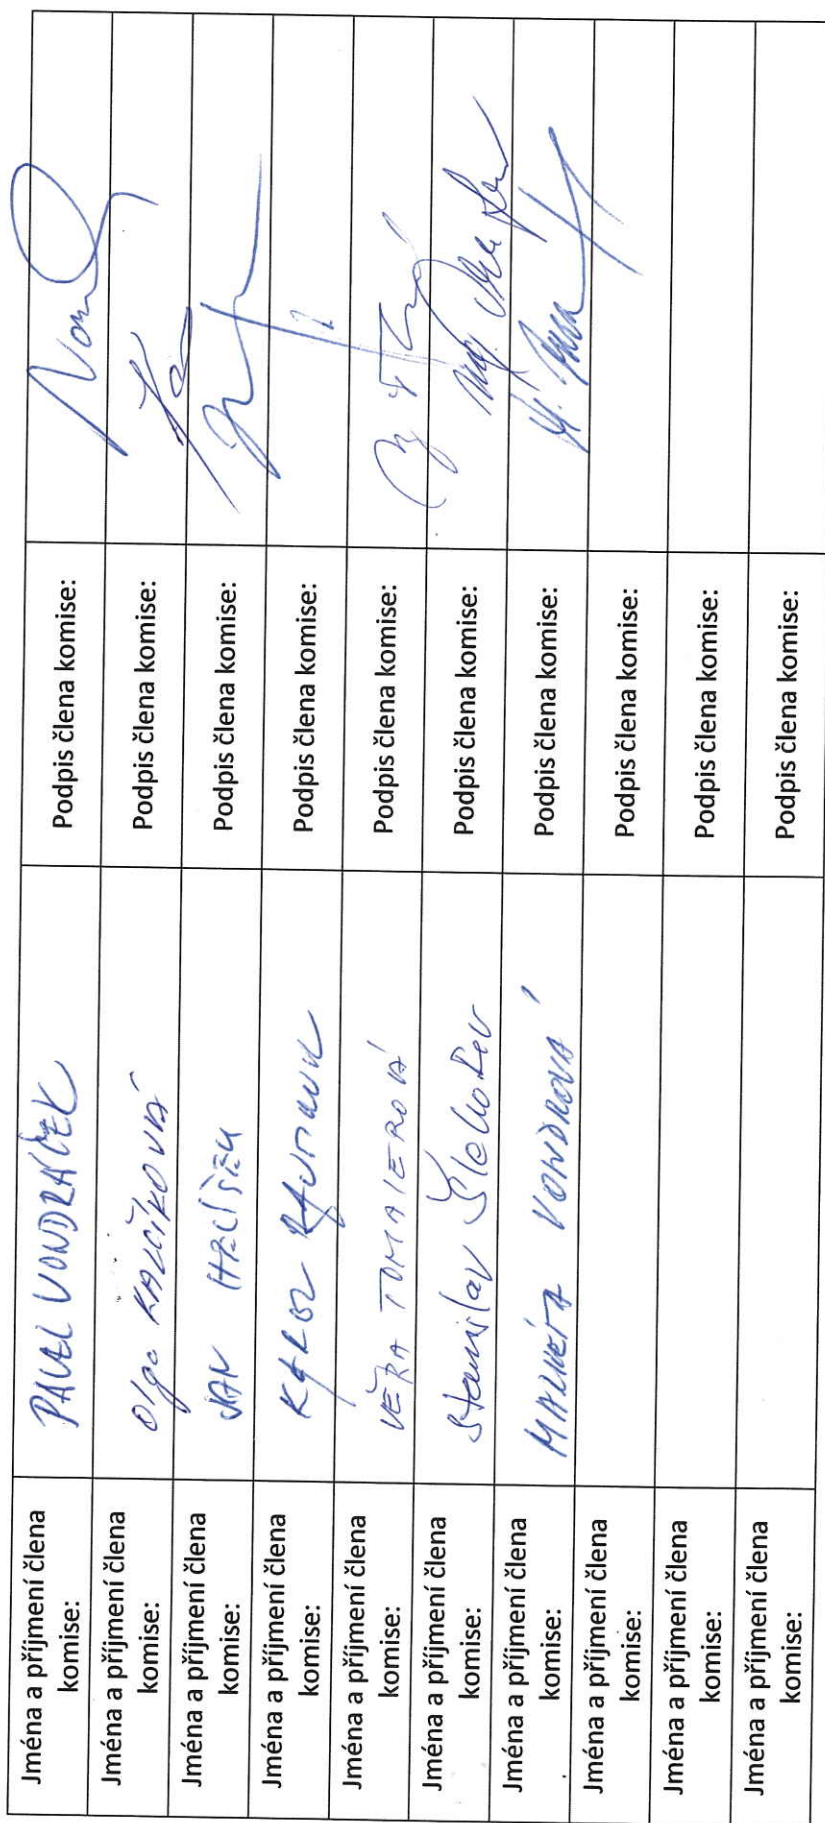 Jména a příjmení člena
komise:
PAVEL VONDRÁČEK
Podpis člena komise:
Jména a příjmení člena
komise:
Olga KALČÍKOVÁ
Podpis člena komise:
Jména a příjmení člena
komise:
JAN
Podpis člena komise:
Jména a příjmení člena
komise:
KAROL
Podpis člena komise:
Jména a příjmení člena
komise:
VĚRA TOMAIEROVÁ
Podpis člena komise:
Jména a příjmení člena
komise:
Stanislav
Podpis člena komise:
Jména a příjmení člena
komise:
MARKÉTA VONDROVÁ
Podpis člena komise:
Jména a příjmení člena
komise:
Podpis člena komise:
Jména a příjmení člena
komise:
Podpis člena komise:
Jména a příjmení člena
komise:
Podpis člena komise: